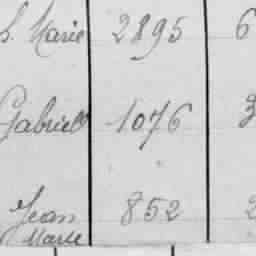 S. Marie 2895 6
Gabriel 1076 3
Jean 852 2
Marie